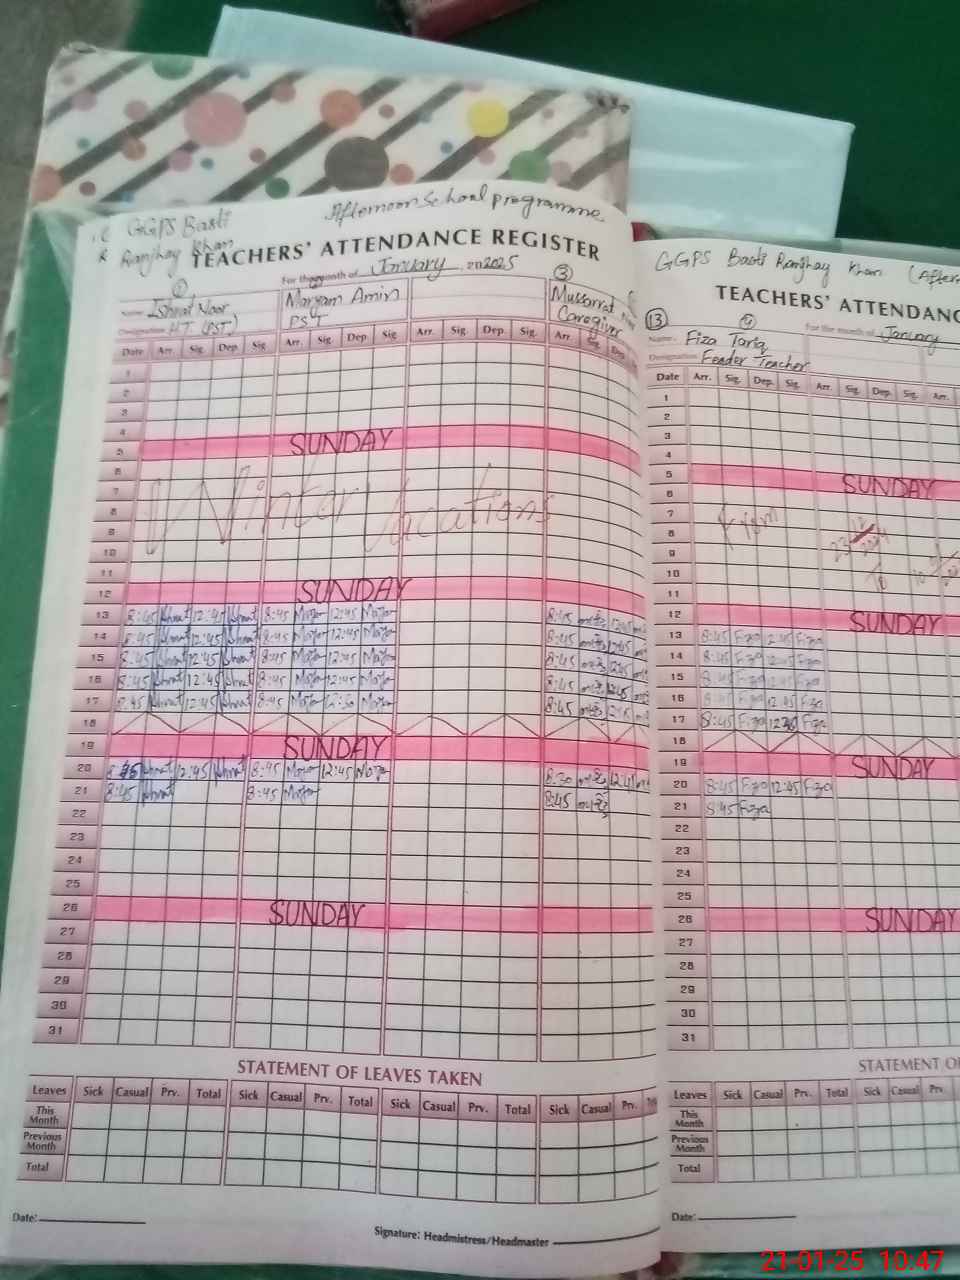 GGPS Basti Afternoon School programme
Ranjhay Khan
TEACHERS' ATTENDANCE REGISTER
For the month of January, 2025
① ③
Name: Ishrat Noor Maryam Amin Mussarrat
Designation HT (PST) PST Caregiver
Date Arr. Sig. Dep. Sig. Arr. Sig. Dep. Sig. Arr. Sig. Dep. Sig. Arr. Sig. Dep.
1
2
3
4
5 SUNDAY
6
7
8 Winter Vacations
9
10
11
12 SUNDAY
13 8:45 Ishrat 12:45 Ishrat 8:45 12:45 8:45
14 8:45 Ishrat 12:45 Ishrat 8:45 12:45 8:45
15 8:45 Ishrat 12:45 Ishrat 8:45 12:45 8:45
16 8:45 Ishrat 12:45 Ishrat 8:45 12:45 8:45 12:45
17 8:45 Ishrat 12:45 Ishrat 8:45 12:30 8:45
18
19 SUNDAY
20 Ishrat 12:45 Ishrat 8:45 12:45 8:30
21 8:45 Ishrat 8:45 8:45
22
23
24
25
26 SUNDAY
27
28
29
30
31
STATEMENT OF LEAVES TAKEN
Leaves Sick Casual Prv. Total Sick Casual Prv. Total Sick Casual Prv. Total Sick Casual Prv.
This Month
Previous Month
Total
Date:
Signature: Headmistress/Headmaster
GGPS Basti Ranjhay Khan (After
TEACHERS' ATTENDANC
13 ④ For the month of January
Name: Fiza Tariq
Designation Feader Teacher
Date Arr. Sig. Dep. Sig. Arr. Sig. Dep. Sig. Arr.
1
2
3
4
5 SUNDAY
6
7
8 From
9
10
11
12 SUNDAY
13 8:45 Fiza 12:45 Fiza
14 8:45 Fiza 12:45 Fiza
15 8:45 Fiza 12:45 Fiza
16 8:45 Fiza 12:45 Fiza
17 8:45 Fiza 12:30 Fiza
18
19 SUNDAY
20 8:45 Fiza 12:45 Fiza
21 8:45 Fiza
22
23
24
25
26 SUNDAY
27
28
29
30
31
STATEMENT O
Leaves Sick Casual Prv. Total Sick Casual Prv.
This Month
Previous Month
Total
Date:
21-01-25 10:47